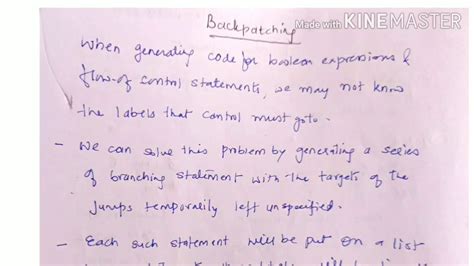 Backpatching
Made with KINEMASTER
When generating code for boolean expressions &
flow-of control statements, we may not know
the labels that control must goto.
- We can solve this problem by generating a series
of branching statement with the targets of the
Jumps temporarily left unspecified.
- Each such statement will be put on a list